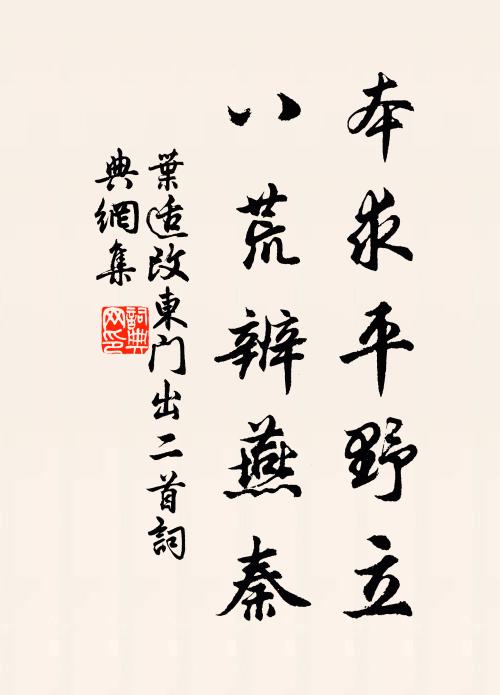 本求平野立
八荒辨燕秦
葉适改東門出二首詞
典網集
詞典
网印